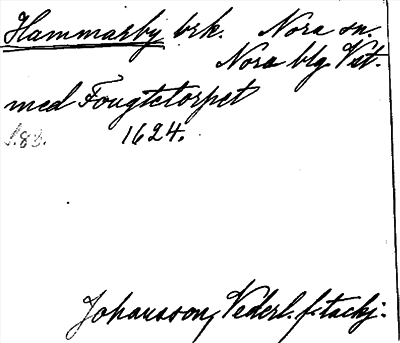 Hammarby brk. Nora sn.
Nora blg. Vst.
med Fougtetorpet
s. 83. 1624.
Johansson, Vederl. f. tackj: